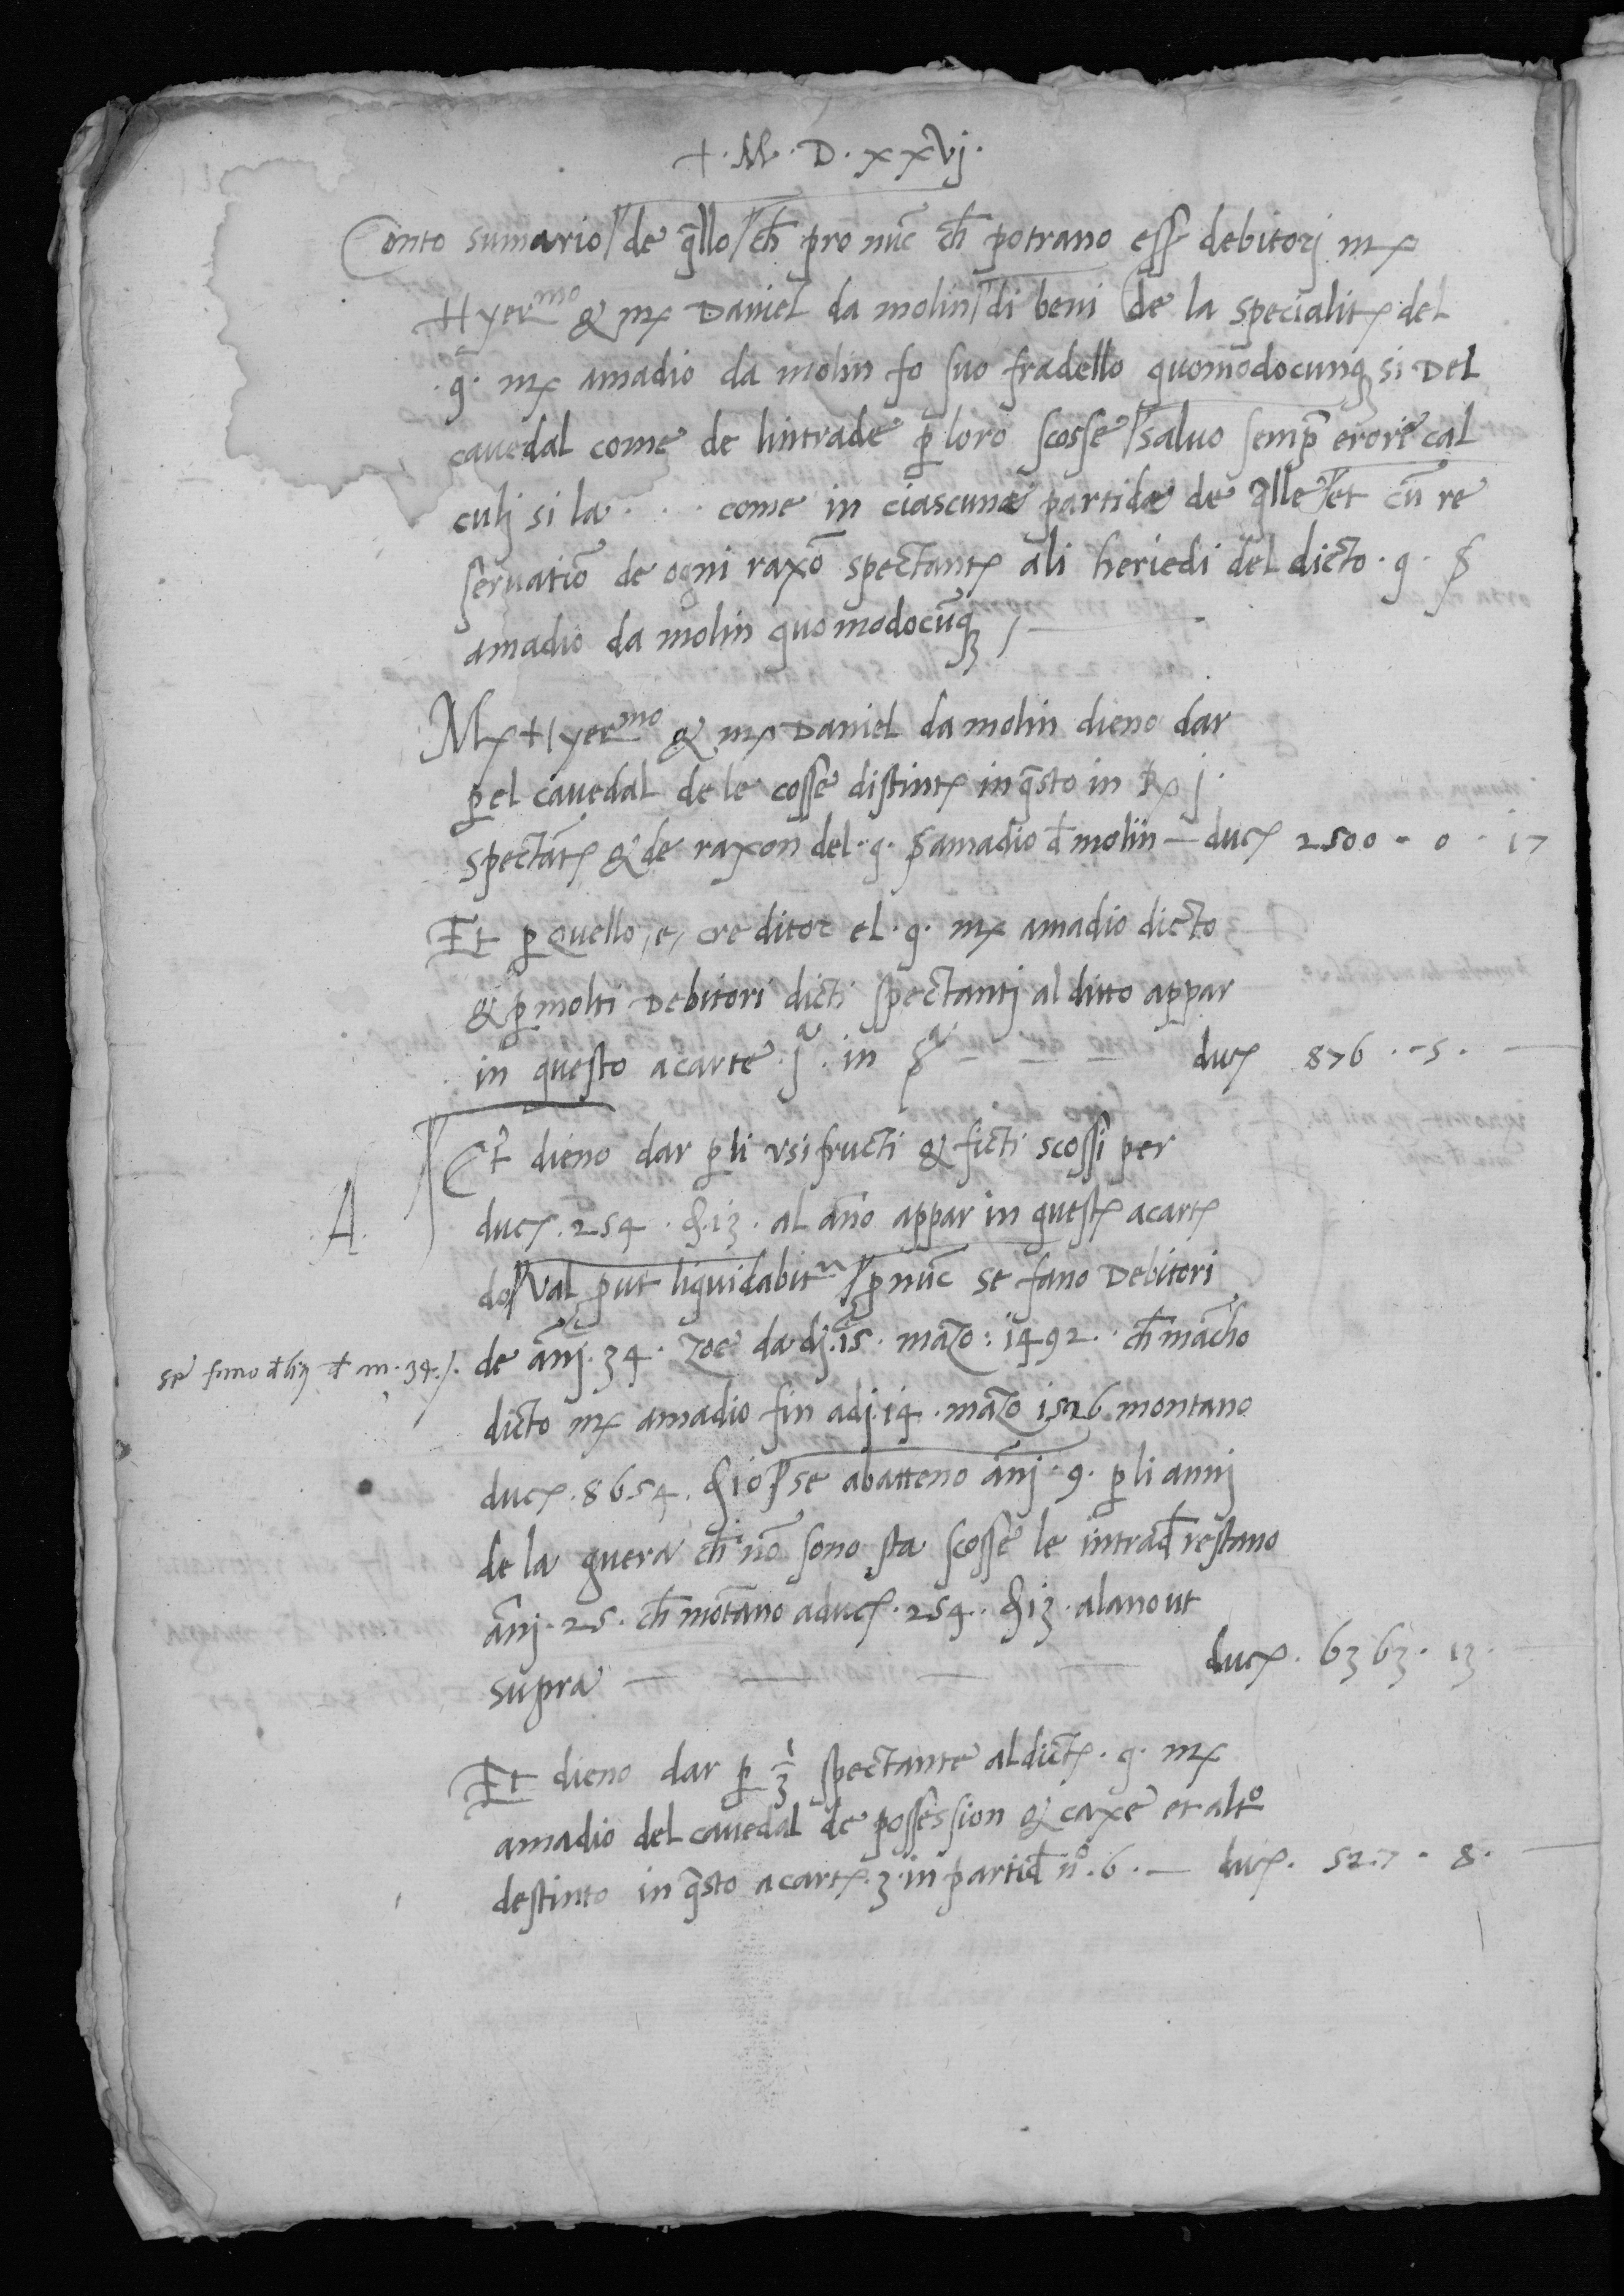 + · M · D · xxvj ·
Conto sumario de q̄llo ch̄ pro nūc ch̄ potrano eſſ debitorj mꝫ
Hyermo & mꝫ Daniel da molin di beni de la specialitꝫ del
· q · mꝫ amadio da molin fo suo fradello quomodocunqꝫ si Del
cauedal come de lintrade ꝑ loro scosse saluo semp̄ erori cal
culj si la · · · come in ciascuna partida de q̄lle et cū re
seruatiō de ogni raxō spectantꝫ ali heriedi del dicto · q · S
amadio da molin quomodocūqꝫ
Mꝫ Hyermo & mꝫ Daniel da molin dieno dar
ꝑel cauedal de le cosse distintꝫ in q̄sto in Rꝫ j ·
spectātꝫ & de raxon del · q · S amadio d̄ molin — ducꝫ 2500 - 0 · 17
Et ꝑ Quello, e, creditor el · q · mꝫ amadio dicto
& ꝑ molti Debitori dicti spectantj al ditto appar
in questo a carte · ja · in Sa — — — ducꝫ 876 · - 5 · —
Et dieno dar ꝑ li vsifructi & ficti scossi per
A.
ducꝫ · 254 · g 13 · al āno appar in questꝫ a cartꝫ
do val put liquidabitur ꝑ nūc se fano Debitori
de ānj · 34 · Zoe da dj · 15 · maZo : 1492 · ch̄ mācho
se fano dbij d̄ an · 34 ·
dicto mꝫ amadio fin adj · 14 · maZo 1526 montano
ducꝫ · 8654 · g 10 se abatteno ānj · 9 · ꝑ li annj
de la guera ch̄ nō sono sta scosse le intrad̄ restano
ānj · 25 · ch̄ mōtano a ducꝫ · 254 · g 13 · al ano ut
supra — — — — ducꝫ · 6363 · 13 · —
Et dieno dar ꝑ 1/3 spectante al dictꝫ · q · mꝫ
amadio del cauedal de possession & caxe et alto
destinto in q̄sto a cartꝫ · 3 · in partid̄ no · 6 · — ducꝫ · 527 · 8 · —